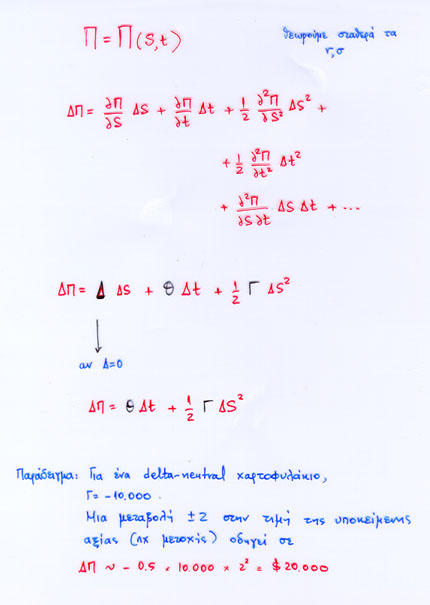 Π = Π(S,t)
θεωρούμε σταθερά τα
r,σ
ΔΠ = ∂Π/∂S ΔS + ∂Π/∂t Δt + 1/2 ∂²Π/∂S² ΔS² +
+ 1/2 ∂²Π/∂t² Δt²
+ ∂²Π/∂S∂t ΔS Δt + ...
ΔΠ = Δ ΔS + Θ Δt + 1/2 Γ ΔS²
αν Δ=0
ΔΠ = Θ Δt + 1/2 Γ ΔS²
Παράδειγμα: Για ένα delta-neutral χαρτοφυλάκιο,
Γ = -10.000.
Μια μεταβολή ±2 στην τιμή της υποκείμενης
αξίας (πχ μετοχής) οδηγεί σε
ΔΠ ~ - 0.5 × 10.000 × 2² = $20.000